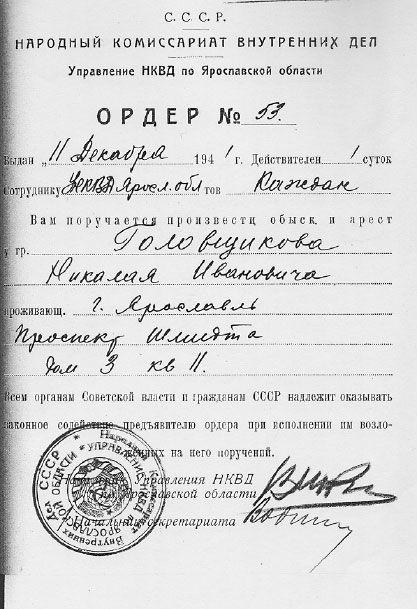 С. С. С. Р.
НАРОДНЫЙ КОМИССАРИАТ ВНУТРЕННИХ ДЕЛ
Управление НКВД по Ярославской области
ОРДЕР № 53.
Выдан „11 Декабря 1941 г. Действителен 1 суток
Сотруднику УНКВД Яросл. обл тов Каждан
Вам поручается произвести обыск и арест
у гр. Головщикова
Николая Ивановича
проживающ. г. Ярославль
Проспект Шмидта
дом 3 кв 11.
Всем органам Советской власти и гражданам СССР надлежит оказывать
законное содействие предъявителю ордера при исполнении им возло-
женных на него поручений.
Начальник Управления НКВД
по Ярославской области
Начальник секретариата
Народный Комиссариат Внутренних Дел СССР
УПРАВЛЕНИЕ НКВД ЯРОСЛАВСКОЙ ОБЛАСТИ